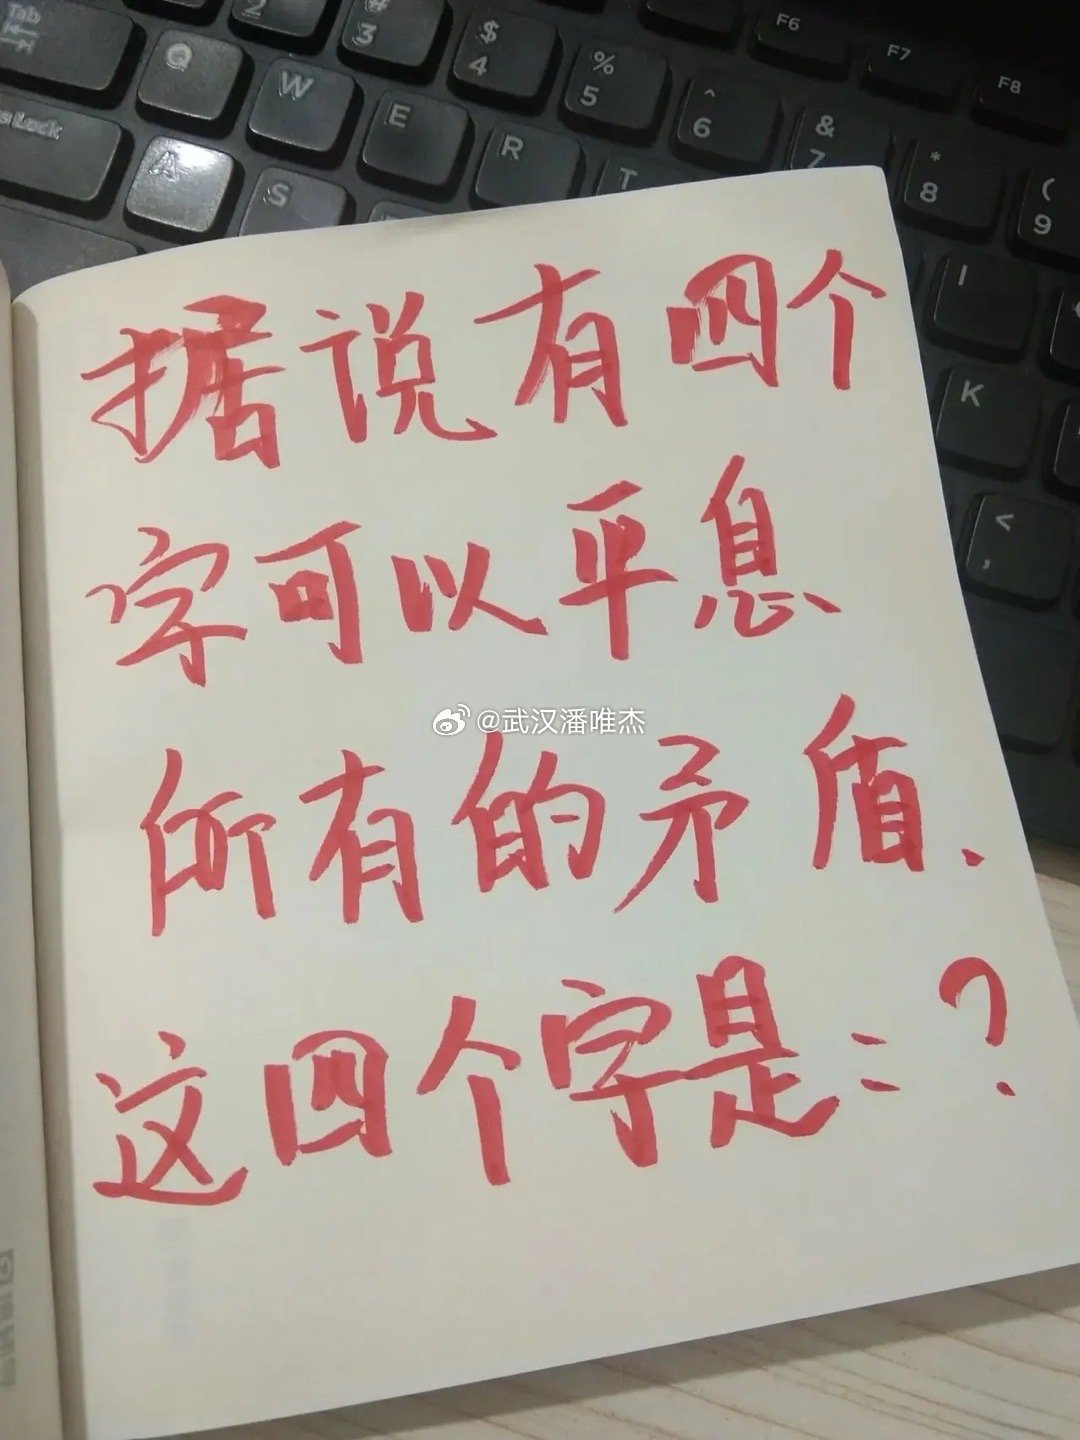 Tab
2
#
3
$
4
%
5
^
6
&
7
*
8
(
9
F6
F7
F8
Q
W
E
R
T
I
Lock
A
S
K
<
,
据说有四个
字可以平息
@武汉潘唯杰
所有的矛盾、
这四个字是:?